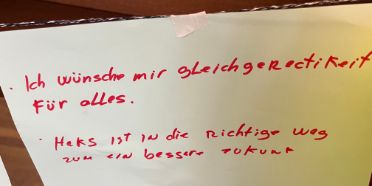 · Ich wünsche mir gleichgerectikeit
für alles.
· Heks ist in die richtige weg
zum ein bessere zukunf